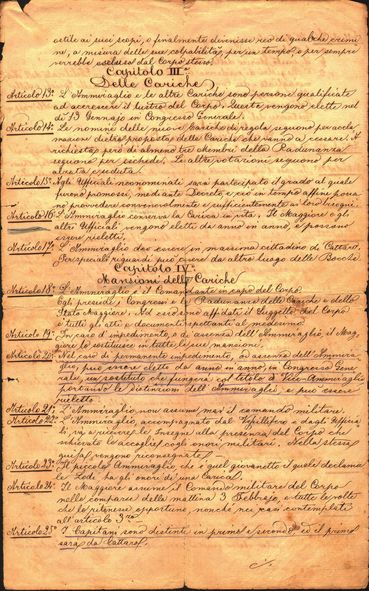 ostile ai suoi scopi, o finalmente divenisse reo di qualche crimi
ne, a misura della sua colpabilità, per un tempo o per sempre
verrebbe escluso dal Corpo stesso.
Capitolo III.
Delle Cariche
Articolo 13º L'Ammiraglio e le altre Cariche sono persone qualificate
ad accrescere il lustro del Corpo. Queste vengono elette nel
dì 13 Gennajo in Congresso Generale.
Articolo 14º Le nomine delle nuove Cariche di regola seguono per accla
mazione dietro proposta delle Cariche che vanno a cessare. A
richiesta però di almeno tre Membri della Radunanza
seguono per ischede. Le altre votazioni seguono per
alzata e seduta.
Articolo 15º Agli Ufficiali neonominati sarà partecipato il grado al quale
furono promossi, mediante Decreto, e ciò in tempo affinchè possa
no provvedere convenevolmente e sufficientemente ai loro bisogni.
Articolo 16º L'Ammiraglio conserva la Carica in vita. Il Maggiore e gli
altri Ufficiali vengono eletti di anno in anno, e possono
essere rieletti.
Articolo 17º L'Ammiraglio dev'essere in massima cittadino di Cattaro.
Per speciali riguardi può essere da altro luogo delle Bocche.
Capitolo IV.
Mansioni delle Cariche
Articolo 18º L'Ammiraglio è il Comandante in capo del Corpo.
Egli presiede i Congressi e le Radunanze delle Cariche e dello
Stato Maggiore. Ad esso sono affidati il Suggello del Corpo
e tutti gli atti e documenti spettanti al medesimo.
Articolo 19º In caso d'impedimento, o di assenza dell'Ammiraglio, il Mag
giore lo sostituisce in tutte le sue mansioni.
Articolo 20º Nel caso di permanente impedimento, od assenza dell'Ammira
glio, può essere eletto da anno in anno, in Congresso Gene
rale, un sostituto che fungerà col titolo di Vice-Ammiraglio
portando le distinzioni dell'Ammiraglio, e può essere
rieletto.
Articolo 21º L'Ammiraglio non assume mai il comando militare.
Articolo 22º L'Ammiraglio, accompagnato dal Vessillifero e dagli Ufficia
li, va a ricevere le Insegne alla presenza del Corpo che
schierato lo accoglie cogli onori militari. Nella stessa
guisa vengono riconsegnate.
Articolo 23º Il piccolo Ammiraglio, che è quel giovanetto il quale declama
le Lodi, ha gli onori di una Carica.
Articolo 24º Il Maggiore assume il Comando militare del Corpo
nelle comparse della mattina 3 Febbrajo, e tutte le volte
che lo ritenesse opportuno, nonchè nei casi contemplati
all'articolo 3º
Articolo 25º I Capitani sono distinti in primo e secondo, ed il primo
sarà da Cattaro.